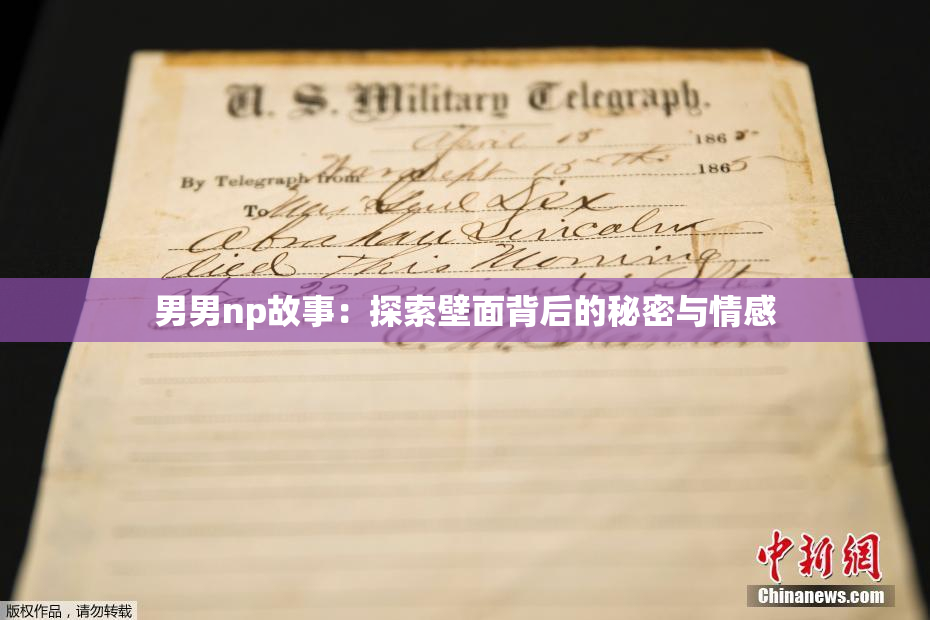 U. S. Military Telegraph.
April 15 1865
By Telegraph from War Dept 15th 1865
To Maj Genl Dix
Abraham Lincoln
died This Morning
at 22 minutes after
男男np故事：探索壁面背后的秘密与情感
中新网
Chinanews.com
版权作品，请勿转载